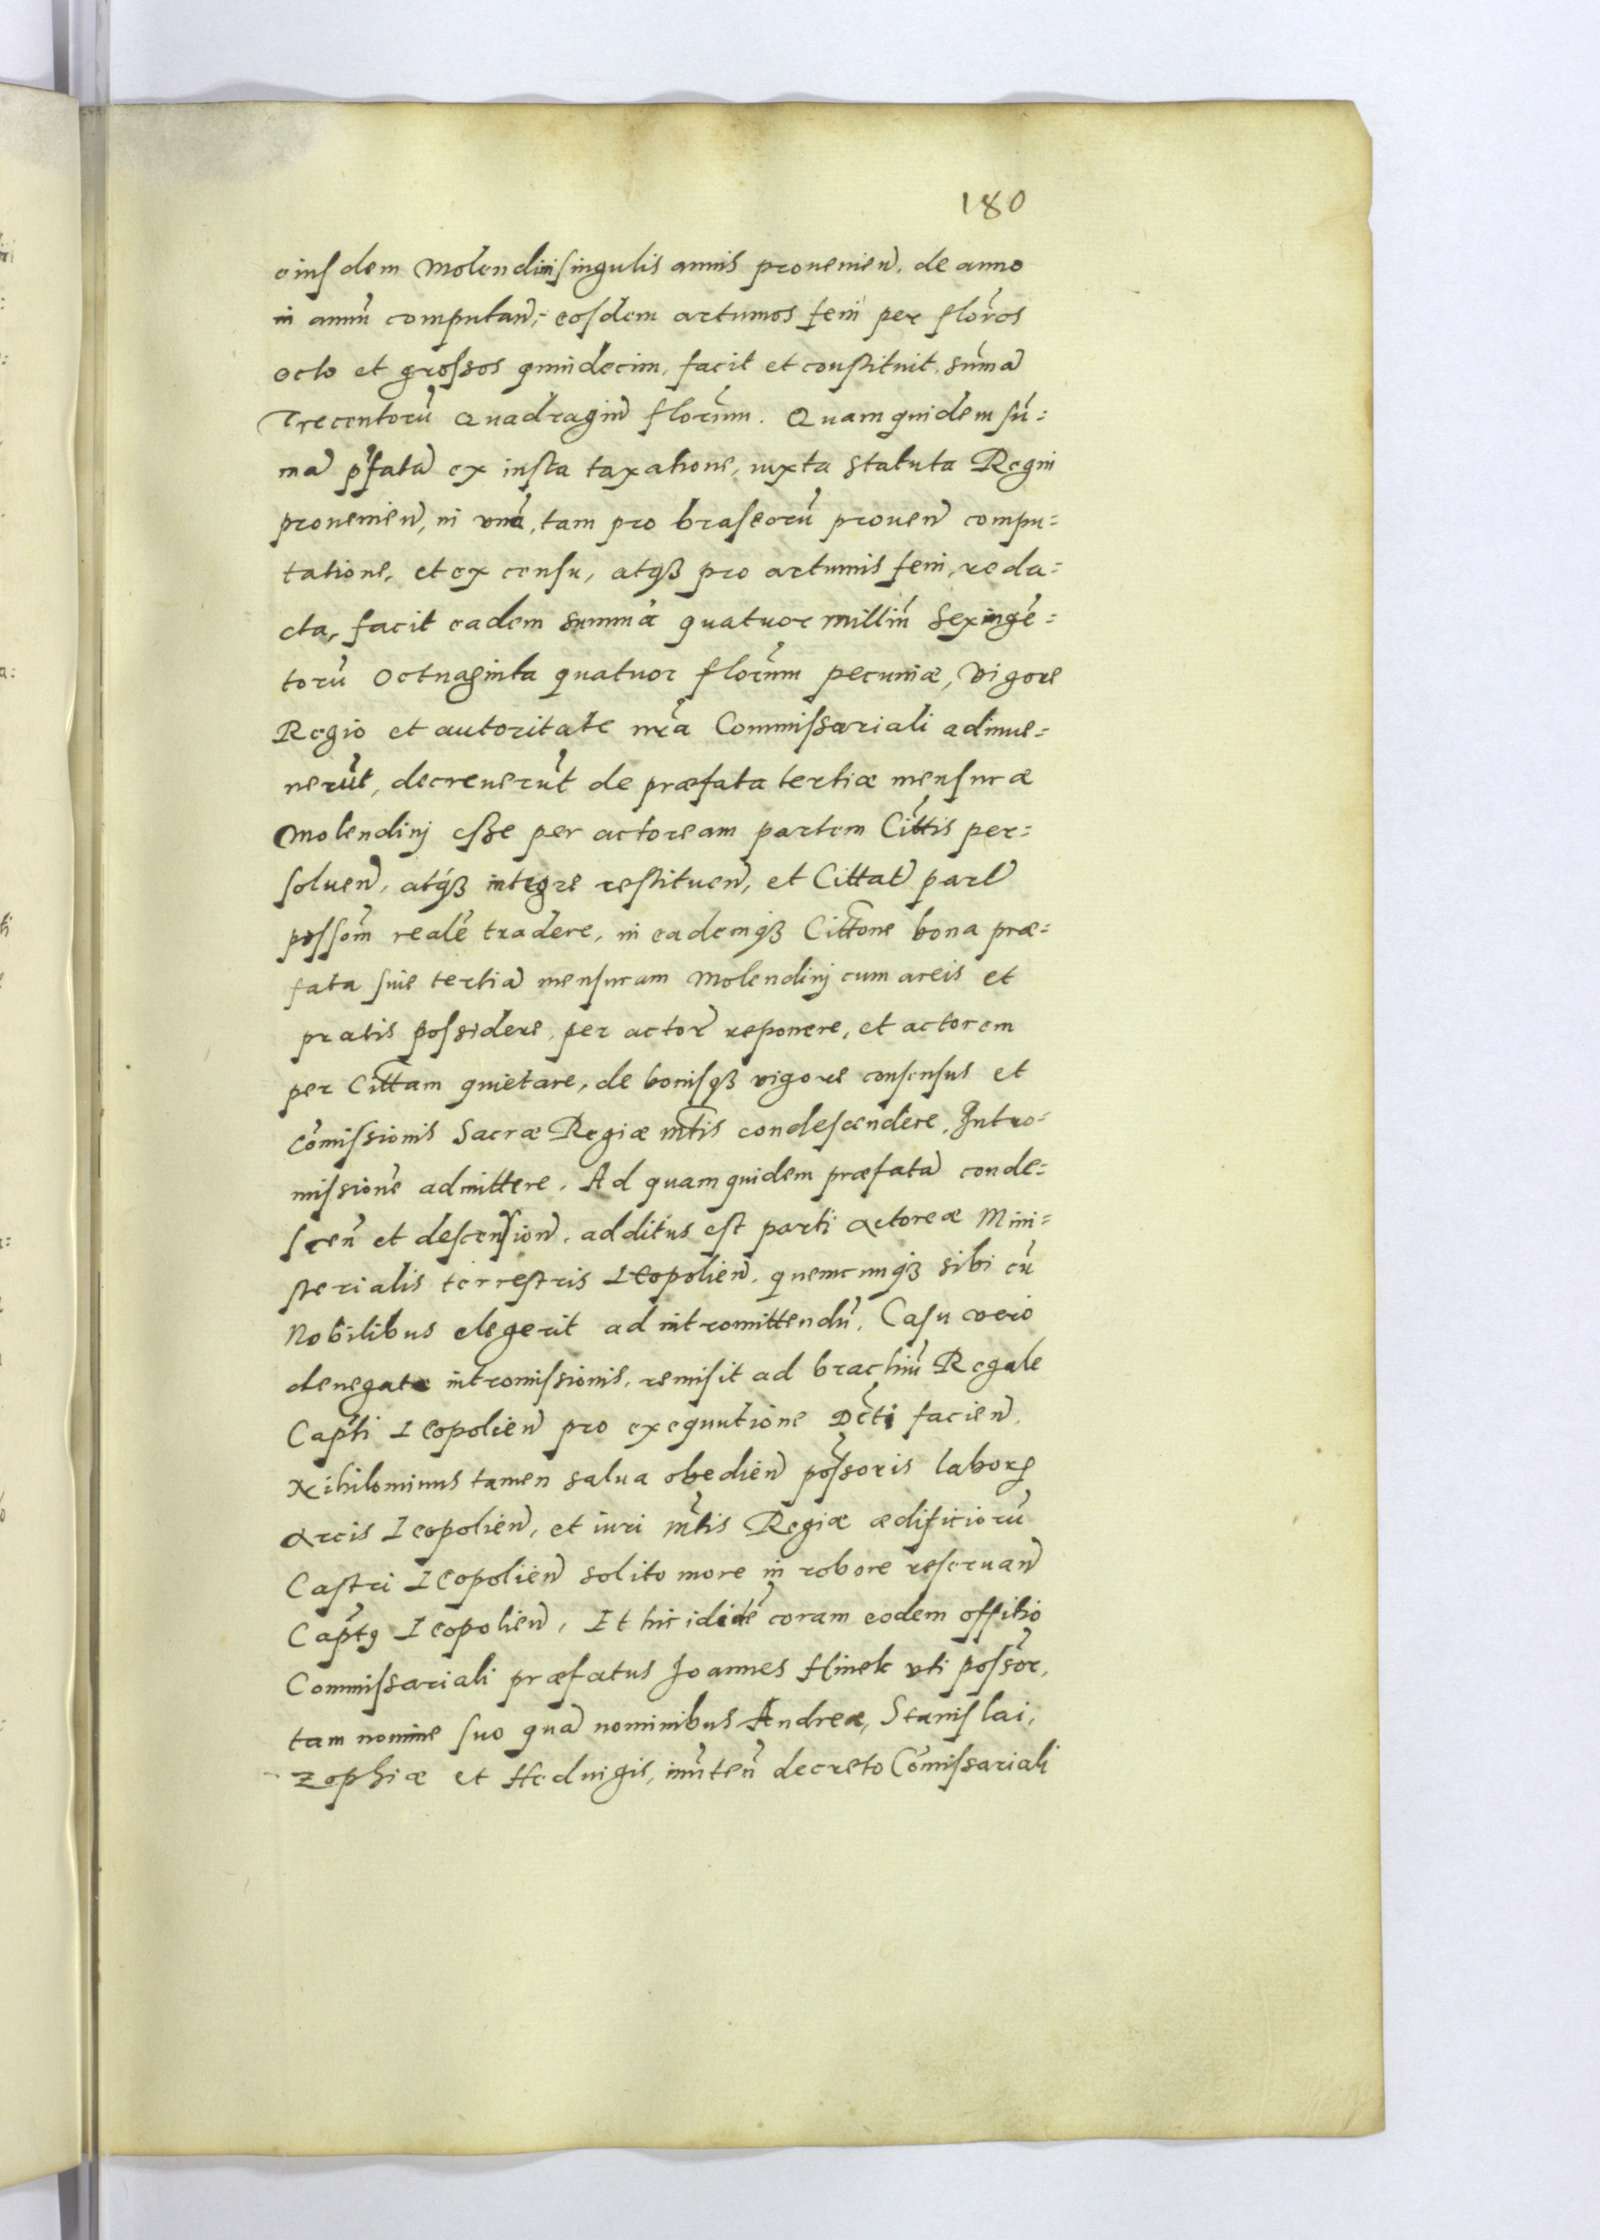 180
eiusdem Molendini singulis annis prouenien̄. de anno
in annū computan̄, eosdem acrumos feni per flōros
octo et grossos quindecim, facit et constituit, sūmā
Trecentorū Quadragin̄ florūm. Quam quidem sū=
mā p̄fatā ex iusta taxatione, iuxta statuta Regni
prouenien̄, in vnā, tam pro braseorū prouen̄ compu=
tatione, et ex censu, atqꝫ pro acrumis feni, reda=
cta, facit eadem summa quatuor milliū Sexingē=
torū Octuaginta quatuor florūm pecuniæ, vigore
Regio et autoritate nr̄a Commissariali adinue=
nerūt, decreuerūt de præfata tertiæ mensuræ
Molendinj esse per actoream partem Cittīs per=
soluen̄, atqꝫ integre restituen̄, et Cittat̄ part̄
possom̄ realē tradere, in eademqꝫ Citt̄one bona præ=
fata siue tertiā mensuram Molendinj cum areis et
pratis possidere, per actor̄ reponere, et actorem
per Citt̄am quietare, de bonisqꝫ vigore consensus et
Cōmissionis Sacræ Regiæ mt̄is condescendere, Intro=
missionē admittere. Ad quam quidem præfatā conde=
scen̄ et descension̄, additus est parti actoreæ Mini=
sterialis terrestris Leopolien̄. quemcunqꝫ sibi cū
Nobilibus elegerit ad intromittendū. Casu vero
denegatæ intromissionis, remisit ad brachiū Regale
Capt̄i Leopolien̄ pro exequutione Dct̄i facien̄.
Nihilominus tamen salua obedien̄ pos̄soris laborꝫ
Arcis Leopolien̄, et iuri mt̄is Regiæ ædificiorū
Castri Leopolien̄ solito more in robore reseruan̄
Capt̄9 Leopolien̄. Et hic ididē coram eodem officio
Commissariali præfatus Joannes Hinek vti pos̄sor,
tam nomine suo quā nominibus Andreæ, Stanislai,
Zophiæ et Heduigis, inn̄ten̄ decreto Cōmissariali